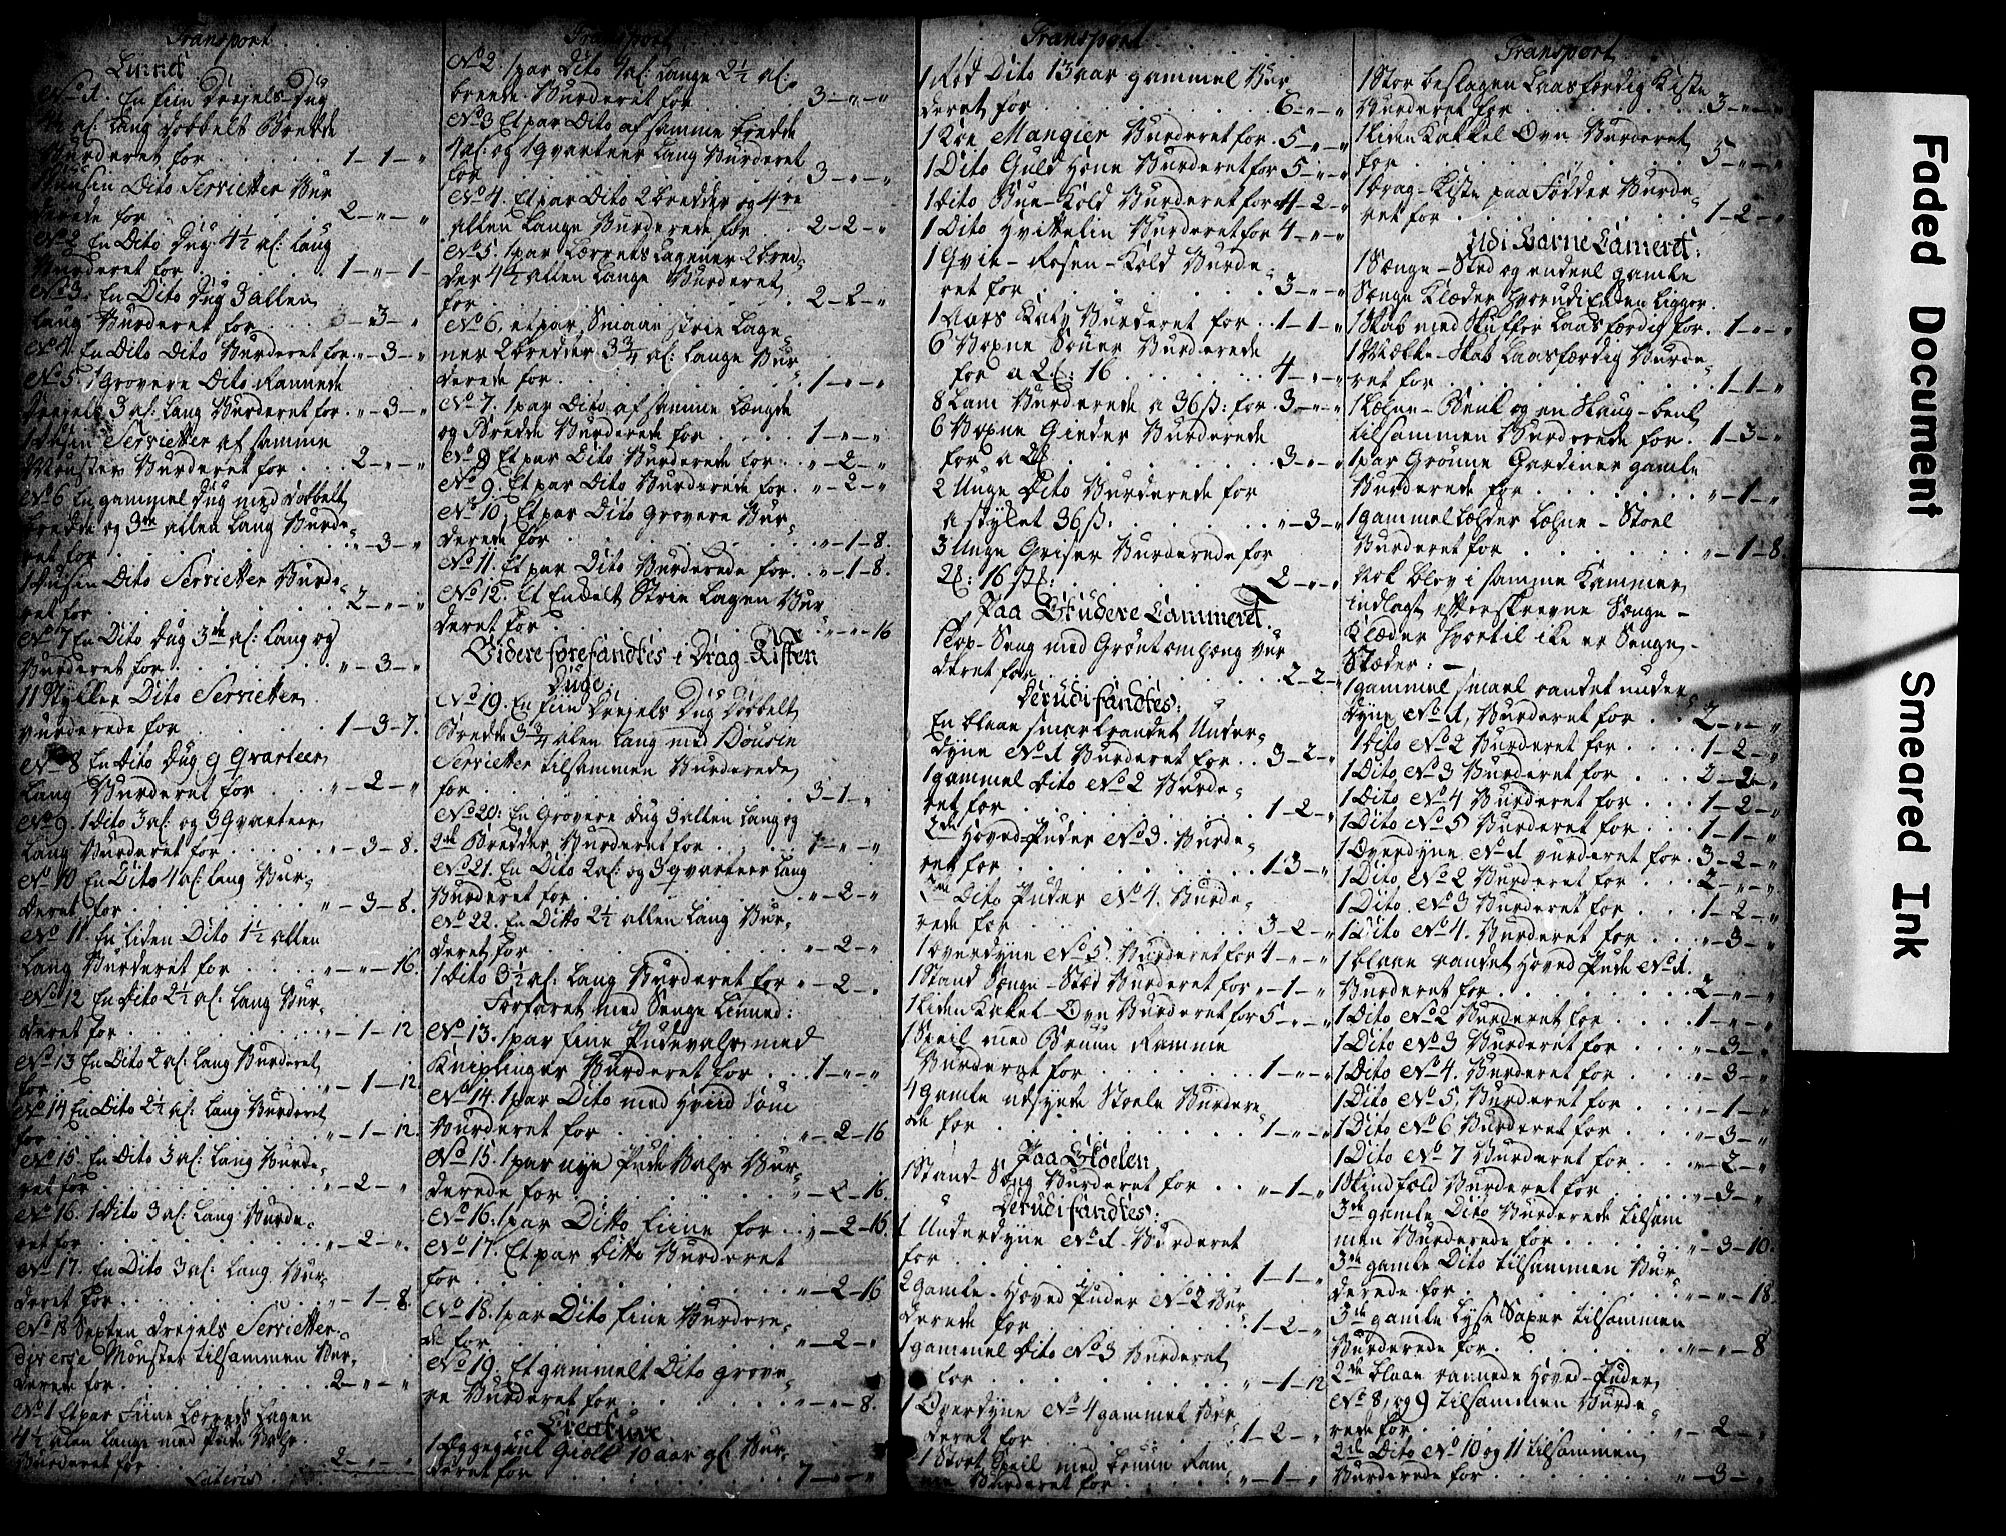 Transport
Linnet
No 1. En fiin Drejels-Dug
4½ al: lang dobbelt Bredde
Vurderet for . . . 1-1-"
1 Dusin Dito Servietter Vur
derede for . . . 2-"-"
No 2 En Dito Dug 4½ al: lang
Vurderet for . . . 1-"-1-
No 3. En Dito Dug 3 allen
lang Vurderet for . . . 3-"
No 4. En Dito Dito Vurderet for "-3-"
No 5. 1 Grovere Dito Rannede
Drejels 3 al: lang Vurderet for. "-3-"
1 Dusin Servietter af samme
Mønster Vurderet for . . . 2-"-"
No 6 En gammel Dug med dobbelt
bredde og 3de allen lang Vurde-
ret for . . . "-3-"
1 Dusin Dito Servietter Vurde-
ret for . . . 2-"-"
No 7 En Dito Dug 3de al: lang og
Vurderet for . . . "-3-"
11 Stykker Dito Servietter
vurderede for . . . 1-3-7.
No 8 En Dito Dug 9 Qvarteer
lang Vurderet for . . . "-2-"
No 9. 1 Dito 3 al: og 3 Qvarteer
lang Vurderet for . . . "-3-8.
No 10 En Dito 4 al: lang Vur-
deret for . . . "-3-8.
No 11. En liden Dito 1½ allen
lang Vurderet for . . . "-"-16.
No 12 En Dito 2½ al: lang Vur-
deret for . . . "-1-12
No 13 En Dito 2 al: lang Vurderet
for . . . "-1-12.
No 14 En Dito 2½ al: lang Vurderet
for . . . "-1-12.
No 15 En Dito 3 al: lang Vurde-
ret for . . . "-2-"
No 16. 1 Dito 3 al: lang Vurde-
ret for . . . "-2-"
No 17. En Dito 3 al: lang Vur-
deret for . . . "-1-8.
No 18 Septen Drejels Servietter
diverse Mønster tilsammen Vur-
derede for . . . 2-"-"
No 1 Et par Fiine Lærreds Lagen
4½ alen lange med Pude Vahr
Vurderet for . . . 2-"-"
Lateris
Transport
No 2. 1 par Dito 4 al: lange 2½ al:
breede Vurderet for . . . 3-"-"
No 3 Et par Dito af samme bredde
1 al: og 1 Qvarteer lang Vurderet
for . . . 3-"-"
No 4. Et par Dito 2 bredder og 4re
allen lange Vurderede for . . . 2-2-"
No 5. 1 par Lærrets Lagener 2 bred-
der 4½ allen lange Vurderet
for . . . 2-2-"
No 6, et par Smaae Strie Lage
ner 2 bredder 3¾ al: lange Vur-
derede for . . . 1-"-"
No 7. 1 par Dito af samme Længde
og Bredde Vurderede for . . . 1-"-"
No 8 Et par Dito Vurderede for . . "-2-"
No 9. Et par Dito Vurderede for . "-2-"
No 10. Et par Dito Grovere Vur-
derede for . . . "-1-8.
No 11. Et par Dito Vurderede for. "-1-8.
No 12. Et Endelt Strie Lagen Vur
deret for . . . "-"-16
Videre forefandtes i Drag-Kisten
Duge:
No 19. En fiin Drejels Dug Dobbelt
Bredde 3¾ Alen lang med 1 Dousin
Servietter tilsammen Vurderede
for . . . 3-1-"
No 20: En Grovere Dug 3 allen lang og
2de Bredder Vurderet for . . . 1-"-"
No 21. En Dito 2 al: og 3 qvarteer lang
Vurderet for . . . "-2-"
No 22. En Ditto 2½ allen lang Vur-
deret for . . . "-2-"
1 Dito 3½ al: lang Vurderet for "-2-.
Forfaret med Senge Linned:
No 13. 1 par fiine Pudevahr med
Kniplinger Vurderet for . . . 1-"-"
No 14. 1 par Dito med Hviid Søm
Vurderet for . . . "-2-16
No 15. 1 par nye Pude Vahr Vur-
derede for . . . "-2-16.
No 16. 1 par Ditto Fiine for . . "-2-16.
No 17. Et par Ditto Vurderet
for . . . "-2-16
No 18. 1 par Dito fiine Vurdere-
de for . . . "-2-"
No 19. Et gammelt Dito grove-
re Vurderet for . . . "-"-8.
Creature
1 Æggegul Giæll 10 aar gl: Vur-
deret for . . . 7-"-"
Transport
1 Rød Dito 13 aar gammel Vur
deret for . . . 6-"-"
1 Koe Mangier Vurderet for 5-"-"
1 Dito Guld Hone Vurderet for 5-"-"
1 Dito Bue-Kold Vurderet for 4-2-"
1 Dito Hvittelin Vurderet for 4-"-"
1 Qvie-Rosen-Kold Vurde-
ret for . . . 3-"-"
1 Aars Kalv Vurderet for . . 1-1-"
6 Voxne Souer Vurderede
for a 2: 16 . . . 4-"-"
8 Lam Vurderede a 36ß: for 3-"-"
6 Voxne Gieder Vurderede
for a . . . 3-"-"
2 Unge Dito Vurderede for
a stykket 36ß. . . . "-3-"
3 Unge Griser Vurderede for
2: 16 st: . . . 2-"-"
Paa Studere Cammeret.
1 Top-Seng med Grønt omhæng Vur
deret for . . . 2-2-"
Derudi fandtes:
En blaae smaelrandet Under-
dyne No 1 Vurderet for . . 3-2-"
1 gammel Dito No 2 Vurde-
ret for . . . 1-2-"
2de Hoved-Puder No 3. Vurde-
ret for . . . 1-3-"
2de Dito Puder No 4. Vurde-
rede for . . . 3-2-"
1 Overdyne No 5. Vurderet for 4-"-"
1 Stand Senge-Sted Vurderet for "-1-"
1 Liden Kakel-Ovn Vurderet for 5-"-"
1 Speil med Bruun Ramme
Vurderet for . . . 1-"-"
4 gamle udsyede Stoele Vurdere-
de for . . . 1-"-"
Paa Stoelen
1 Stand-Seng Vurderet for . . "-1-"
Derudi fandtes:
1 Underdyne No 1. Vurderet
for . . . 1-1-"
2 gamle Hoved Puder No 2 Vur-
derede for . . . 1-2-"
1 gammel Dito No 3 Vurderet
for . . . "-1-12
1 Overdyne No 4 gammel Vur-
deret for . . . 1-2-"
1 Stort Speil med bruun Ram
me Vurderet for . . . "-1-"
Transport
1 Stor beslagen Laasfærdig Kiste
Vurderet for . . . 3-"-"
1 Liden Kakkel Ovn Vurderet
for . . . 5-"-"
1 Drag-Kiste paa Fødder Vurde-
ret for . . . 1-2-"
Udi Barne Cameret:
1 Senge-Sted og endeel gamle
Senge Klæder hvorudi Enden ligger.
1 Skab med Skuffer Laasfærdig for. 1-"-"
1 Melke-Skab Laasfærdig Vurde-
ret for . . . 1-1-"
1 Lehne-Benk og en Skaug-benk
tilsammen Vurderede for . 1-3-"
1 par Grønne Gardiner gamle
Vurderede for . . . "-1-"
1 gammel Læhder Læhne-Stoel
Vurderet for . . . "-1-8.
Nok blev i samme Kammer
indlagt efterskrevne Senge-
Klæder hvortil ike er Senge-
Stæder:-
1 gammel smael randet under-
dyne No 1, Vurderet for . . 2-"-"
1 Dito No 2 Vurderet for . . . 1-2-"
1 Dito No 3 Vurderet for . . . 2-2-"
1 Dito No 4 Vurderet for . . . 1-2-"
1 Dito No 5 Vurderet for . . . 1-1-"
1 Overdyne No 1 vurderet for . 3-2-"
1 Dito No 2 Vurderet for . . . 2-"-"
1 Dito No 3 Vurderet for . . . 1-2-"
1 Dito No 4. Vurderet for . . . "-3-"
1 blaae randet Hoved Pude No 1.
Vurderet for . . . 2-"-"
1 Dito No 2 Vurderet for . . . 1-"-"
1 Dito No 3 Vurderet for . . . "-3-"
1 Dito No 4. Vurderet for . . . "-3-"
1 Dito No 5, Vurderet for . . . "-1-"
1 Dito No 6 Vurderet for . . . "-3-"
1 Dito No 7 Vurderet for . . . "-2-"
1 Skindfeld Vurderet for . . . "-3-"
3de gamle Dito Vurderede tilsam
men Vurderede for . . . "-3-10.
3de gamle Dito tilsammen Vur
derede for . . . "-"-18.
3de gamle Lyse Saxer tilsammen
Vurderede for . . . "-"-8
2de blaae rannede Hoved-Puder
No 8, og 9 tilsammen Vurde-
rede for . . . "-2-"
2de Dito No 10 og 11 tilsammen
Vurderede for . . . "-3-"
Faded Document
Smeared Ink